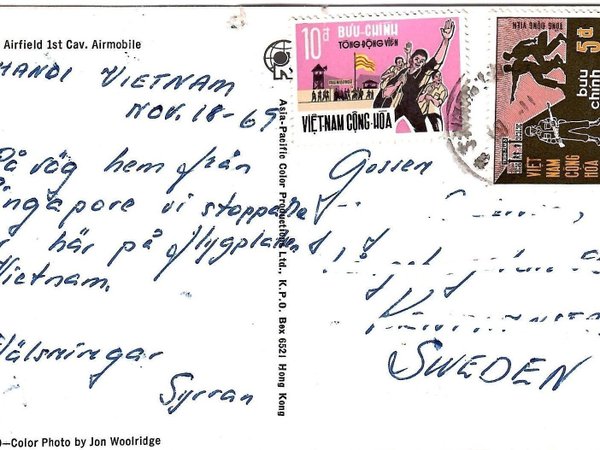 Airfield 1st Cav. Airmobile
HANOI VIETNAM
NOV. 18-69
På väg hem från
ingapore vi stoppade
här på flygplatsen i
Vietnam.
älsningar
Syrran
–Color Photo by Jon Woolridge
Asia-Pacific Color Productions Ltd., K.P.O. Box 6521 Hong Kong
10đ BƯU-CHÍNH
TỔNG-ĐỘNG-VIÊN
VIỆT-NAM CỘNG-HÒA
TỔNG ĐỘNG VIÊN
5đ
bưu chính
VIỆT NAM CỘNG HÒA
Gossen
SWEDEN